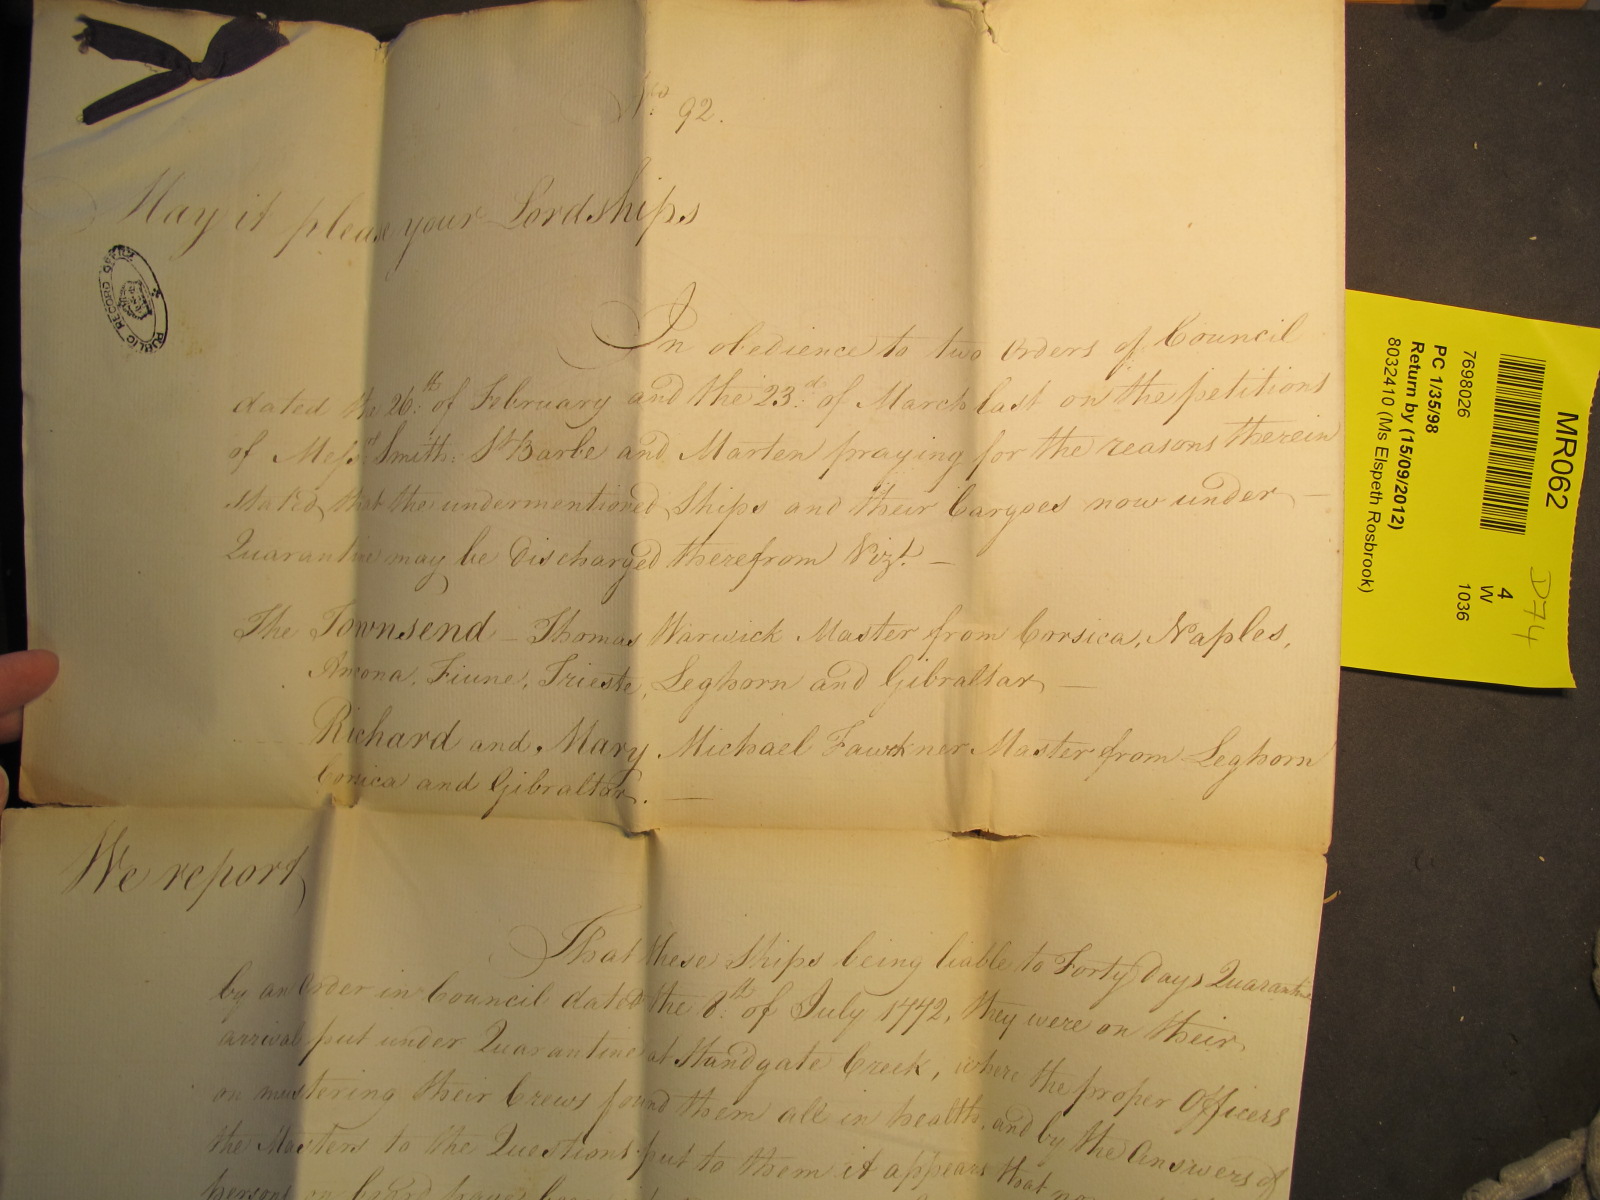 No. 92.
May it please your Lordships
PUBLIC RECORD OFFICE
In obedience to two Orders of Council
dated the 26th of February and the 23d of March last on the petitions
of Messrs Smith: St Barbe and Marten praying for the reasons therein
stated that the undermentioned Ships and their Cargoes now under —
Quarantine may be Discharged therefrom Vizt. —
The Townsend — Thomas Warwick Master from Corsica, Naples,
Ancona, Fiume, Trieste, Leghorn and Gibraltar —
Richard and Mary Michael Fawckner Master from Leghorn
Corsica and Gibraltar. —
We report
That these Ships being liable to Forty Days Quarantine
by an Order in Council dated the 8th of July 1772, they were on their
arrival put under Quarantine at Standgate Creek, where the proper Officers
on mustering their Crews found them all in health, and by the Answers of
the Masters to the Questions put to them it appears that no
persons on board have
MR062
7698026
PC 1/35/98
Return by (15/09/2012)
8032410 (Ms Elspeth Rosbrook)
4
W
1036
D74